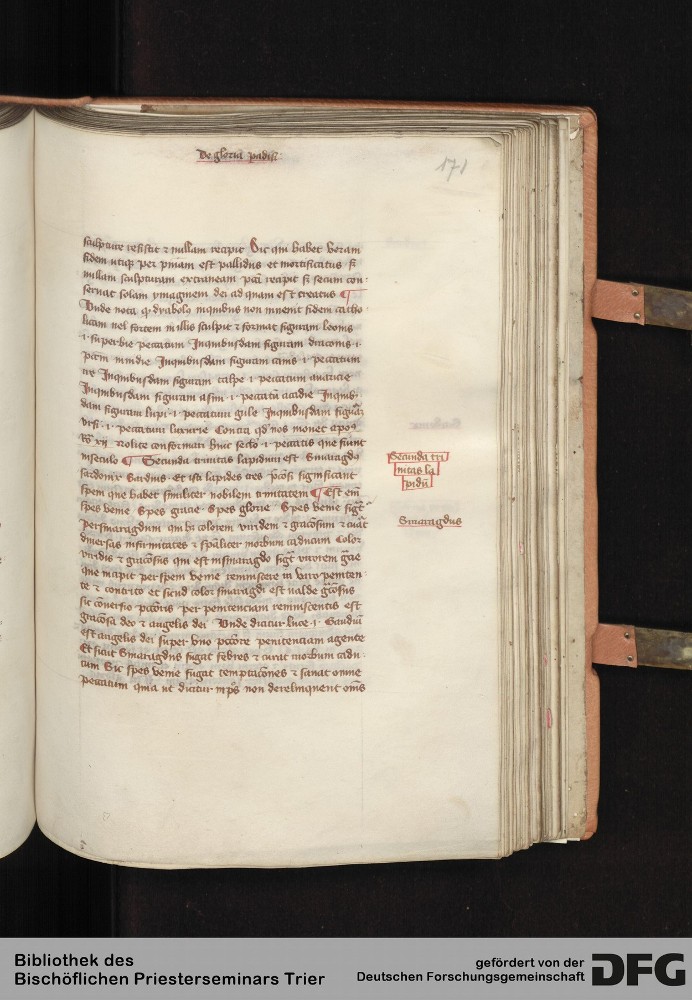 De gloria padisi
171
sculpture resistit ⁊ nullam recipit Sic qui habet veram
fidem utiqꝫ per pniam est pallidus et mortificatus
nullam sculpturam extraneam pcti recipit si secum con-
servat solam ymaginem dei ad quam est creatus ¶
Unde nota dyabolo inquibus non invenit fidem catho-
licam vel fortem in illis sculpit ⁊ format figuram leonis
·i· superbie peccatum Inquibusdam figuram draconis ·i·
pctm invidie Inquibusdam figuram canis ·i· peccatum
ire Inquibusdam figuram talpe ·i· peccatum avaricie
Inquibusdam figuram asini ·i· peccatū acadie Inquibꝫ-
dam figuram lupi ·i· peccatum gule Inquibusdam figurā
ursi ·i· peccatum luxurie Contra qd nos monet apoꝰ
Ro xij Nolite conformari huic seclo ·i· peccatis que fiunt
inseculo ¶ Secunda trinitas lapidum est Smaragdꝰ
sardonix Sardius Et isti lapides tres pciosi significant
spem que habet similiter nobilem trinitatem ¶ Est em
spes venie Spes gracie Spes glorie Spes venie sigt
persmaragdum qui hꝫ colorem viridem ⁊ graciosum ⁊ curat
diversas infirmitates ⁊ spaliter morbum caducum Color
viridis ⁊ graciosus qui est insmaragdo sigt virorem grae
que incipit per spem venie reminiscere in viro peniten-
te ⁊ contrito et sicud color smaragdi est valde graciosus
sic conversio pctoris per penitenciam reminiscentis est
graciosa deo ⁊ angelis dei Unde dicitur luce ·i· Gaudiū
est angelis dei super uno pctore penitenciam agente
Et sicut Smaragdus fugat febres ⁊ curat morbum cadu-
cum Sic spes venie fugat temptacōnes ⁊ sanat omne
peccatum quia ut dicitur non derelinquent oms
Secunda tri
nitas la
pidū
Smaragdus
Bibliothek des
Bischöflichen Priesterseminars Trier
gefördert von der
Deutschen Forschungsgemeinschaft
DFG